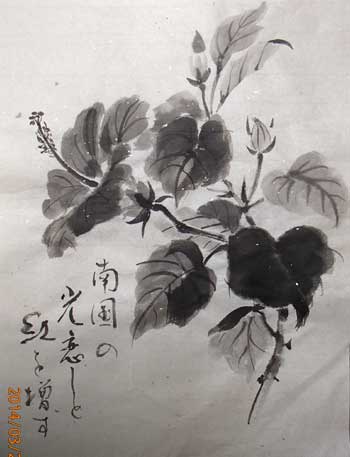 南国の
光恋しと
紅を増す
2014/03/